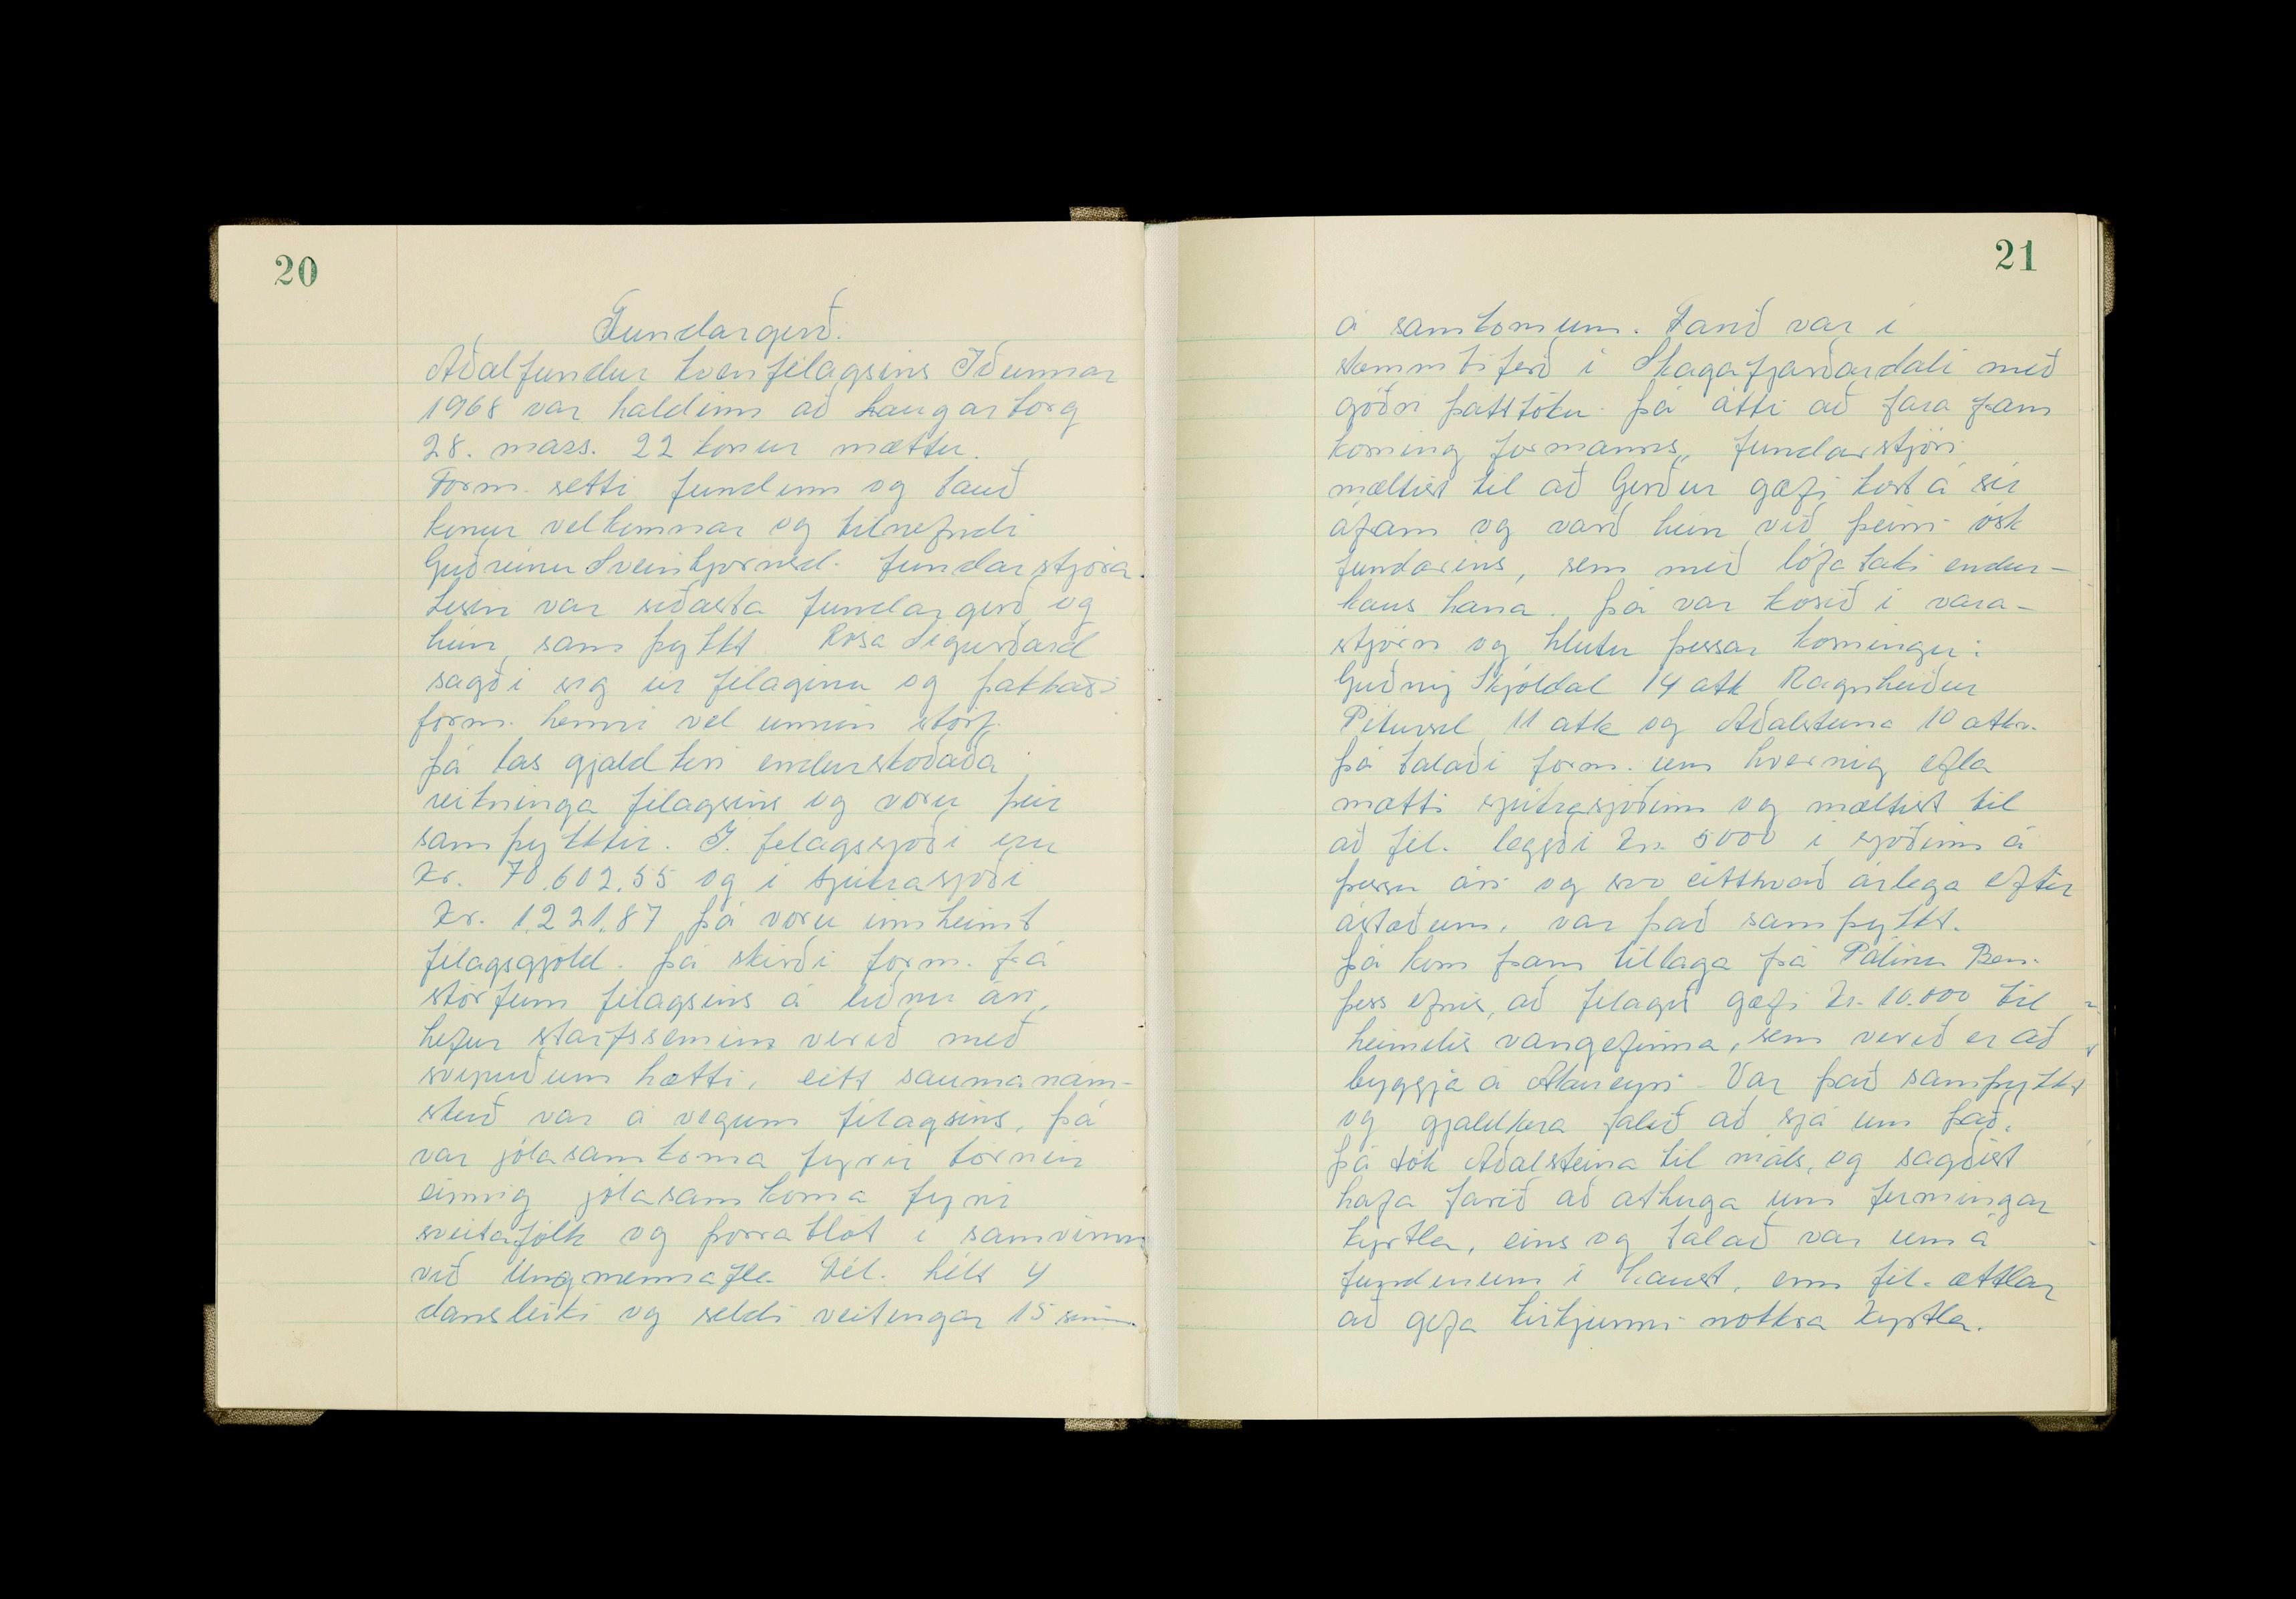 20
Fundargerð.
Aðalfundur kvenfélagsins Iðunnar
1968 var haldinn að Laugarborg
28. mars. 22 konur mættu.
Form. setti fundinn og bauð
konur velkomnar og tilnefndi
Guðrúnu Sveinbjörnsd. fundarstjóra.
Lesin var síðasta fundargerð og
hún samþykkt. Rósa Sigurðard
sagði sig úr félaginu og þakkaði
form. henni vel unnin störf.
Þá las gjaldkeri endurskoðaða
reikninga félagsins og voru þeir
samþykktir. Í félagssjóði eru
kr. 70.602.55 og í sjúkrasjóði
kr. 1.221.87 þá voru innheimt
félagsgjöld. Þá skírði form. frá
störfum félagsins á liðnu ári,
hefur starfssemin verið með
svipuðum hætti, eitt saumanám-
skeið var á vegum félagsins, þá
var jólasamkoma fyrir börnin
einnig jólasamkoma fyrir
sveitafólk og þorrablót í samvinnu
við Ungmennafél. Fél. hélt 4
dansleiki og seldi veitingar 15 sinn.
21
á samkomum. Farið var í
skemmtiferð í Skagafjarðardali með
góðri þátttöku. Þá átti að fara fram
kosning formanns, fundarstjóri
mæltist til að Gerður gæfi kost á sér
áfram og varð hún við þeirri ósk
fundarins, sem með lófataki endur-
kaus hana. Þá var kosið í vara-
stjórn og hlutu þessar kosningu:
Guðný Skjóldal 14 atk Ragnheiður
Pétursd 11 atk og Aðalsteina 10 atkv.
Þá talaði form. um hvernig efla
mætti sjúkrasjóðinn og mæltist til
að fél. leggði kr. 5000 í sjóðinn á
þessu ári og svo eitthvað árlega eftir
ástæðum, var það samþykkt.
Þá kom fram tillaga frá Pálínu Ben.
þess efnis, að félagið gæfi kr. 10.000 til
heimilis vangefinna, sem verið er að
byggja á Akureyri. Var það samþykkt
og gjaldkera falið að sjá um það.
Þá tók Aðalsteina til máls, og sagðist
hafa farið að athuga um fermingar
kyrtla, eins og talað var um á
fundinum í haust, enn fél. ættlar
að gefa kirkjunni nokkra kyrtla.